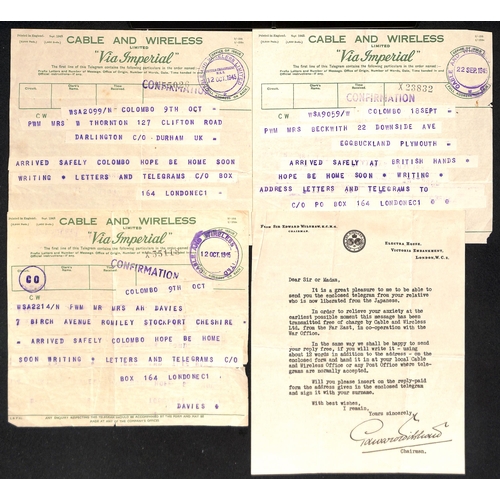 CABLE AND WIRELESS
LIMITED
"Via Imperial"
12 OCT. 1945
CONFIRMATION
CW
WSA2099/N COLOMBO 9TH OCT -
PWM MRS B THORNTON 127 CLIFTON ROAD
DARLINGTON C/O-DURHAM UK =
ARRIVED SAFELY COLOMBO HOPE BE HOME SOON
WRITING = LETTERS AND TELEGRAMS C/O BOX
164 LONDONEC1
CABLE AND WIRELESS
LIMITED
"Via Imperial"
22 SEP. 1945
X23832
CONFIRMATION
CW
WSA9059/N COLOMBO 18 SEPT =
PWM MRS BECKWITH 22 DOWNSIDE AVE
EGGBUCKLAND PLYMOUTH =
ARRIVED SAFELY AT BRITISH HANDS
HOPE BE HOME SOON = WRITING =
ADDRESS LETTERS AND TELEGRAMS TO
C/O PO BOX 164 LONDONEC1
CABLE AND WIRELESS
LIMITED
"Via Imperial"
12 OCT. 1945
CONFIRMATION
GO
COLOMBO 9TH OCT
CW
WSA2214/N PWM MR MRS AH DAVIES
7 BIRCH AVENUE ROMILEY STOCKPORT CHESHIRE
= ARRIVED SAFELY COLOMBO HOPE BE HOME
SOON WRITING = LETTERS AND TELEGRAMS C/O
BOX 164 LONDONEC1
DAVIES
FROM SIR EDWARD WILSHAW, K.C.M.G.
CHAIRMAN.
ELECTRA HOUSE,
VICTORIA EMBANKMENT,
LONDON, W.C.2.
Dear Sir or Madam,
It is a great pleasure to me to be able to
send you the enclosed telegram from your relative
who is now liberated from the Japanese.
In order to relieve your anxiety at the
earliest possible moment this message has been
transmitted free of charge by Cable and Wireless
Ltd., from the Far East, in co-operation with the
War Office.
In the same way we shall be happy to
send your reply free, if you will write it - using
about 12 words in addition to the address - on the
enclosed form and hand it in at your local Cable
and Wireless Office or any Post Office where tele-
grams are normally accepted.
Will you please insert on the reply-paid
form the address given in the enclosed telegram
and sign it with your surname.
With best wishes,
I remain,
Yours sincerely,
Edward Wilshaw
Chairman.